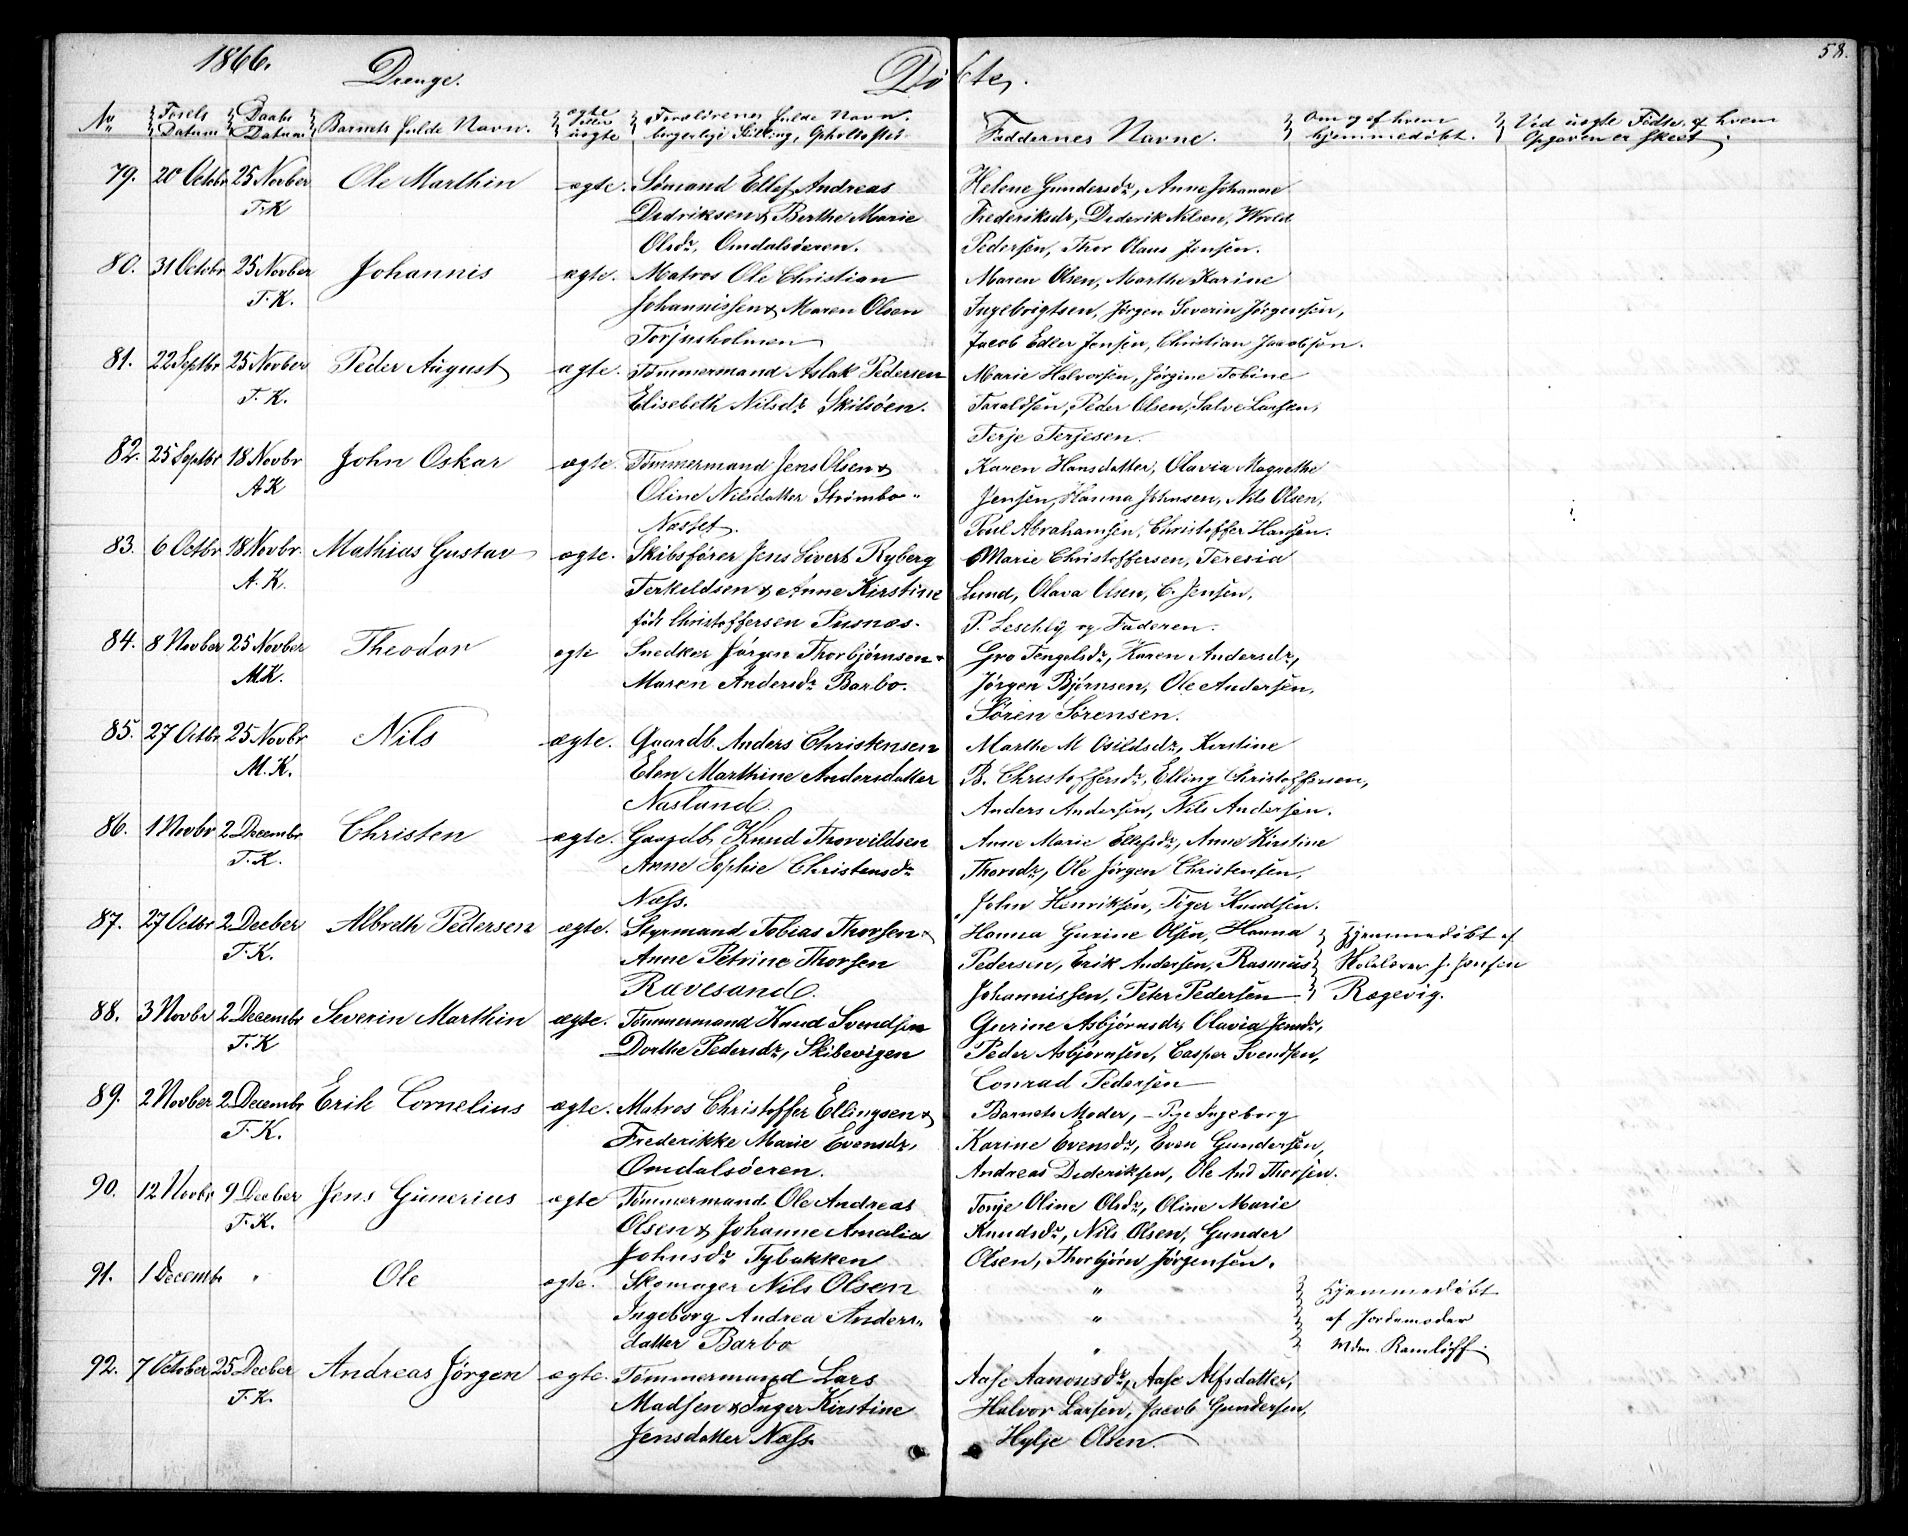 1866.
Drenge. Døbte. 58.
No Fødsels Datum Daabs Datum Barnets fulde Navn. ægte eller uægte Forældrenes fulde Navn. borgerlige Stilling, Opholdssted Faddernes Navne. Om og af hvem hjemmedøbt. Ved uægte Fødte, af hvem Opgaven er skeet.
79. 20 Octobr 25 Novber Ole Marthin ægte. Sømand Ellef Andreas Helene Gundersdr, Anne Johanne
T.K Dedriksen & Berthe Marie Frederiksdr, Dederik Nilsen,
Olsdr, Omdalsøeren. Pedersen, Thor Olaus Jensen.
80. 31 Octobr 25 Novber Johannis ægte. Matros Ole Christian Maren Olsen, Marthe Karine
T.K. Johannissen & Maren Olsen Ingebrigtsen, Jørgen Severin Jørgensen,
Torjusholmen Jacob Edler Jensen, Christian Jacobsen.
81. 22 Septbr 25 Novber Peder August ægte. Tømmermand Aslak Pedersen Marie Halvorsen, Jørgine Tobine
T.K. Elisebeth Nilsdr Skilsøen. Taraldsen, Peder Olsen, Salve Larsen,
Terje Terjesen.
82. 25 Septbr 18 Novbr John Oskar ægte. Tømmermand Jens Olsen & Karen Hansdatter, Olavia Magrethe
A K Oline Nilsdatter Strømbo- Jensen, Hanna Johnsen, Nils Olsen,
Næsset. Poul Abrahamsen, Christoffer Hansen.
83. 6 Octbr 18 Novbr. Mathias Gustav ægte. Skibsfører Jens Sivert Ryberg Marie Christoffersen, Teresia
A.K. Terkeldsen & Anne Kirstine Lund, Olava Olsen, C. Jensen,
født Christoffersen Pusnæs. P. Leschly og Faderen.
84. 8 Novber 25 Novber Theodor ægte Snedker Jørgen Thorbjørnsen & Gro Tengelsdr, Karen Andersdr,
M.K. Maren Andersdr Barbo. Jørgen Bjørnsen, Ole Andersen,
Søren Sørensen.
85. 27 Octbr. 25 Novbr Nils ægte. Gaardb. Anders Christensen Marthe M Osildsdr, Kirstine
M.K. Elen Marthine Andersdatter B. Christoffersdr, Elling Christoffersen,
Næsland Anders Andersen, Nils Andersen.
86. 1 Novbr 2 Decembr Christen ægte. Gaardb. Knud Thorvildsen Anne Marie Ellefsdr, Anne Kirstine
T.K. Anne Sophie Christensdr Thorsdr, Ole Jørgen Christensen,
Næss. John Henriksen, Teger Knudsen.
87. 27 Octbr 2 Decber Albreth Pedersen ægte. Styrmand Tobias Thorsen & Hanna Gurine Olsen, Hanna Hjemmedøbt af
T.K. Anne Petrine Thorsen Pedersen, Erik Andersen, Rasmus J. Jensen
Rævesand. Johannissen, Peter Pedersen Rægevig.
88. 3 Novbr 2 Decembr Severin Marthin ægte. Tømmermand Knud Svendsen Gurine Asbjørnsdr, Olavia Jensdr,
T.K Dorthe Pedersdr, Skibevigen Peder Asbjørnsen, Casper Svendsen,
Conrad Pedersen
89. 2 Novber 2 Decembr Erik Cornelius ægte. Matros Christoffer Ellingsen & Barnets Moder, - Pige Ingeborg
T.K. Frederikke Marie Evensdr, Karine Evensdr, Even Gundersen,
Omdalsøeren. Andreas Dederiksen, Ole And Thorsen.
90. 12 Novbr 9 Decber Jens Gunerius ægte Tømmermand Ole Andreas Tonje Oline Olsdr, Oline Marie
T.K. Olsen & Johanne Amalia Knudsdr, Nils Olsen, Gunder
Johnsdr Tybakken Olsen, Thorbjørn Jørgensen.
91. 1 Decemb " Ole ægte. Skomager Nils Olsen " Hjemmedøbt
Ingeborg Andrea Anders- " af Jordemoder
datter Barbo " Mdm. Ramløff.
92. 7 October 25 Decber Andreas Jørgen ægte. Tømmermand Lars Aase Aanonsdr, Aase Alfsdatter,
T.K. Madsen & Inger Kirstine Halvor Larsen, Jacob Gundersen,
Jensdatter Næss. Hylje Olsen.